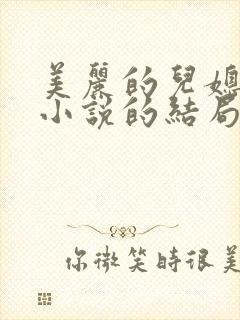 美麗的兒媳
小說的結局
你微笑時很美